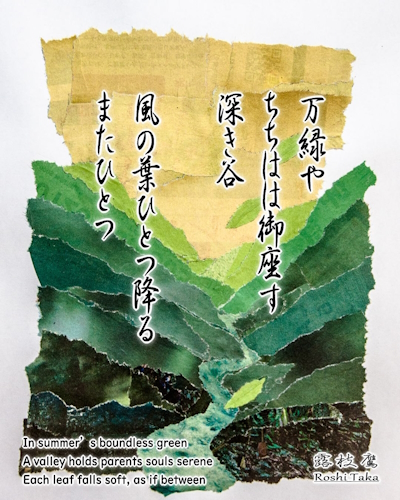 万緑や
ちちはは御座す
深き谷
風の葉ひとつ降る
またひとつ
In summer’s boundless green
A valley holds parents souls serene
Each leaf falls soft, as if between
露枝鷹
Roshi Taka